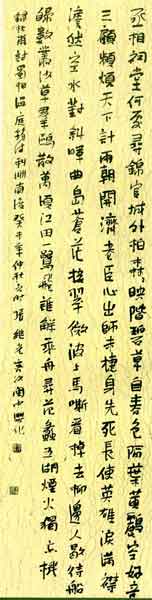 丞相祠堂何處尋錦官城外柏森森映階碧草自春色隔葉黃鸝空好音
三顧頻煩天下計兩朝開濟老臣心出師未捷身先死長使英雄淚滿襟
澹然空水對斜暉曲島蒼茫接翠微波上馬嘶看棹去柳邊人歇待船
歸數叢沙草群鷗散萬頃江田一鷺飛誰解乘舟尋范蠡五湖煙水獨忘機
錄杜甫蜀相溫庭筠利州南渡癸年仲秋